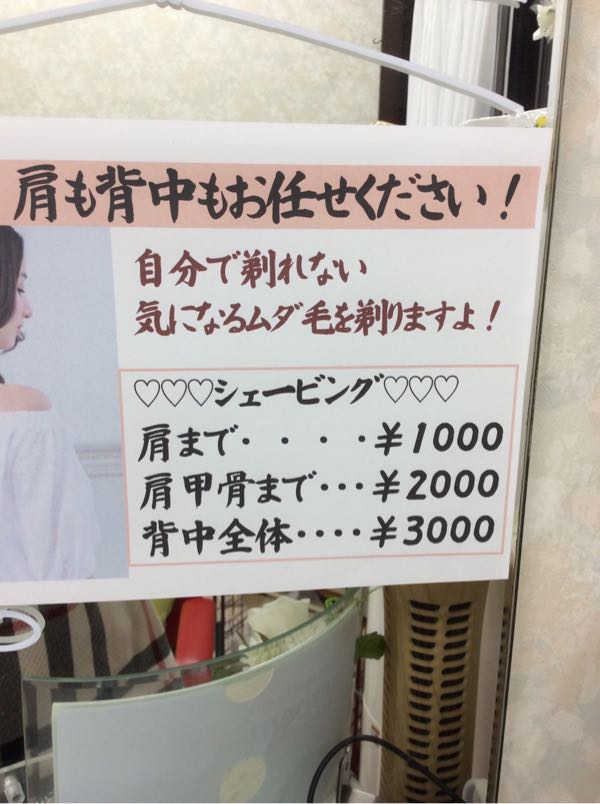 肩も背中もお任せください!
自分で剃れない
気になるムダ毛を剃りますよ!
♡♡♡シェービング♡♡♡
肩まで・・・・¥1000
肩甲骨まで・・・¥2000
背中全体・・・・¥3000